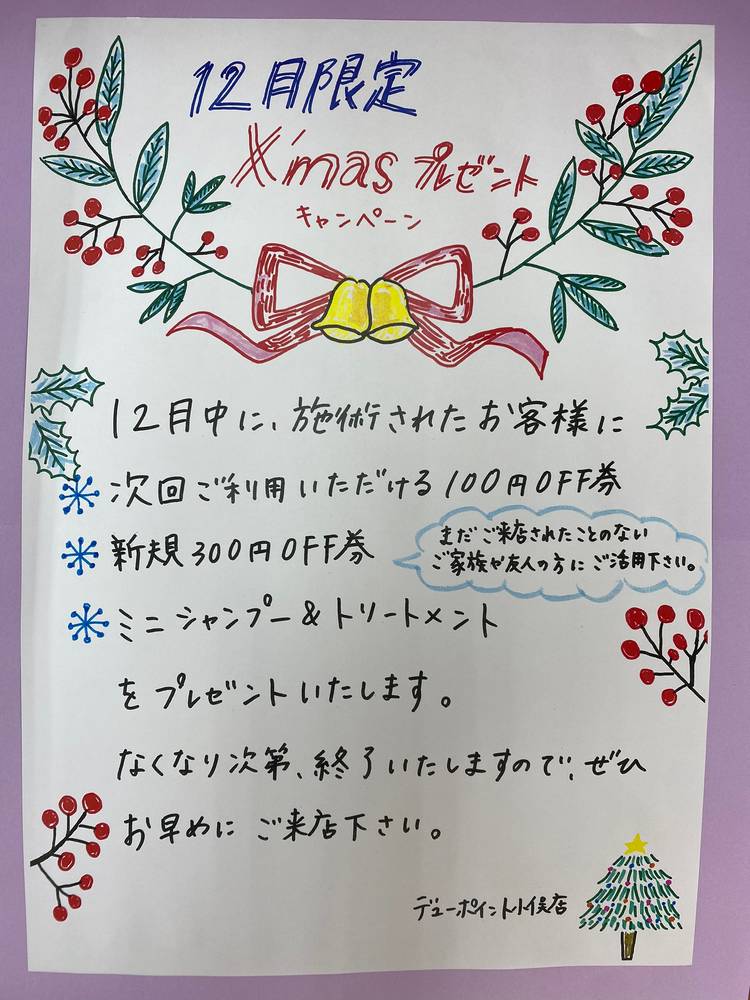 12月限定
X'mas プレゼント
キャンペーン
12月中に、施術されたお客様に
次回ご利用いただける100円OFF券
新規300円OFF券
まだご来店されたことのない
ご家族や友人の方にご活用下さい。
ミニシャンプー&トリートメント
をプレゼントいたします。
なくなり次第、終了いたしますので、ぜひ
お早めにご来店下さい。
デューポイント小俣店